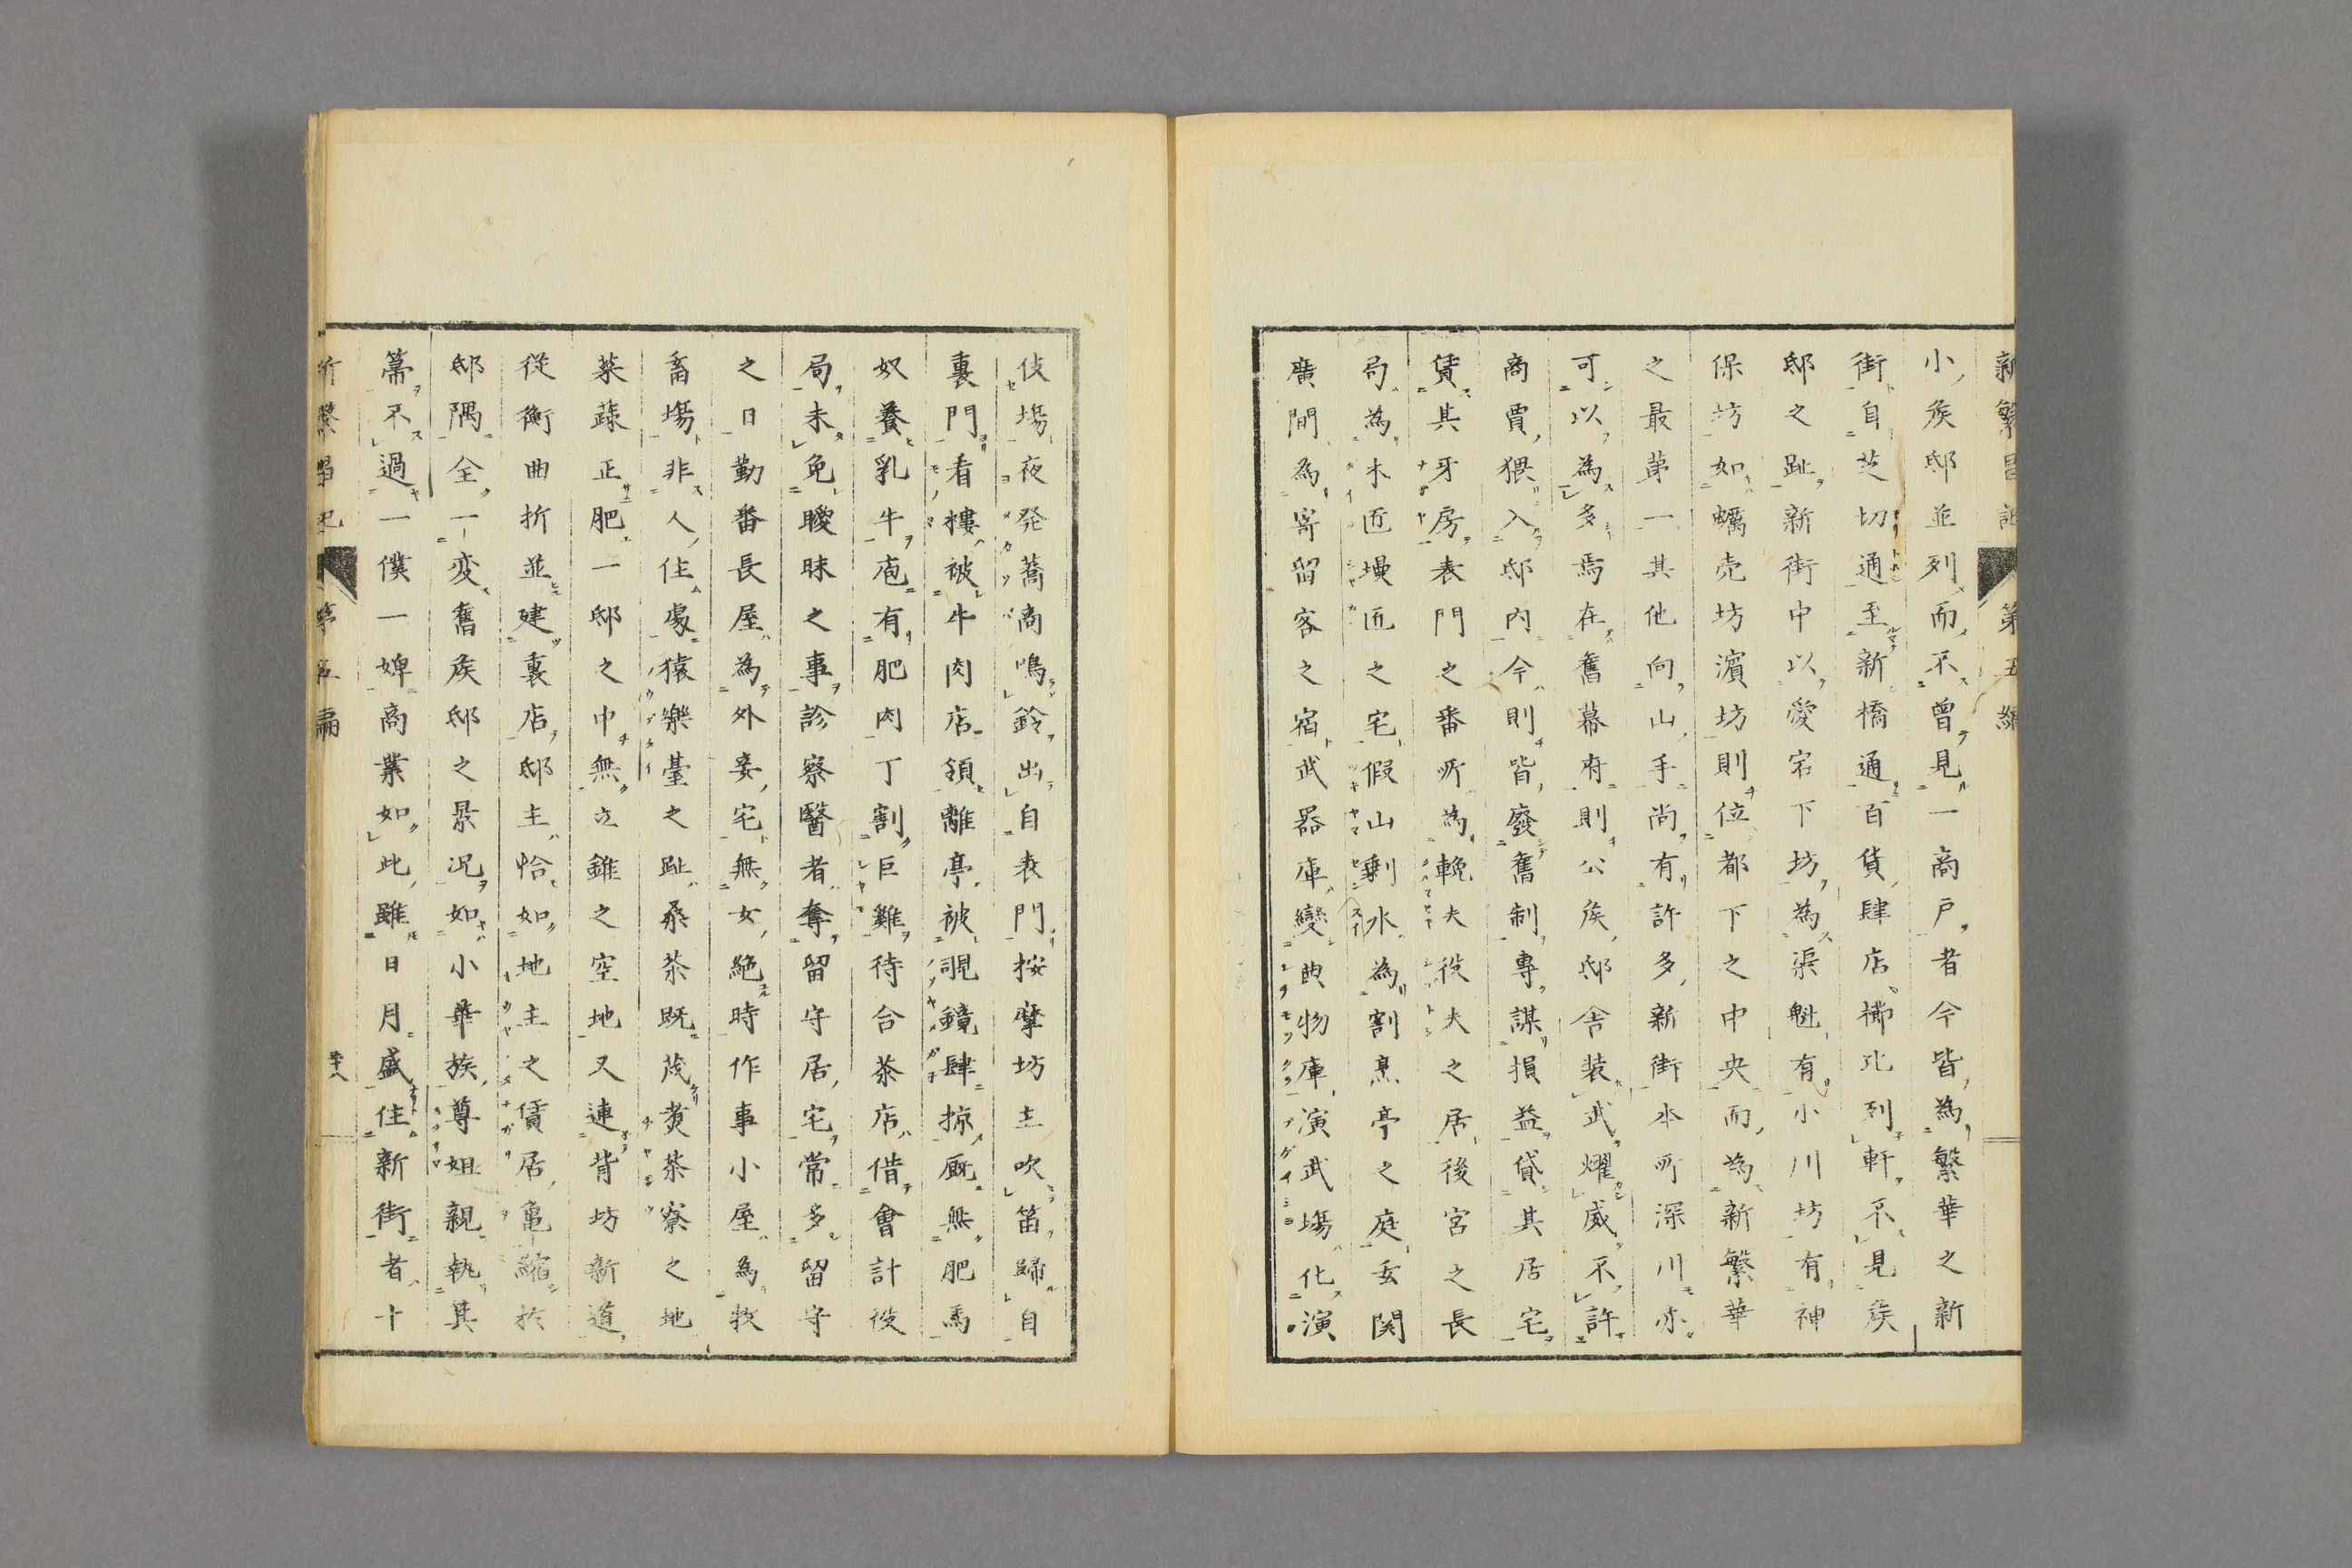 新繁昌記 第五編
小侯邸並列而不曽見一商戸者今皆為繁華之新
街自芝切通至新橋通百貨肆店櫛比列軒不見侯
邸之趾新街中以愛宕下坊為渠魁有小川坊有神
保坊如蠣売坊濵坊則位都下之中央而為新繁華
之最苐一其他向山手尚有許多新街本所深川亦
可以為多焉在舊幕府則公侯邸舎装武燿威不許
商賈猥入邸内今則皆廢舊制專謀損益貸其居宅
賃其牙房表門之番所為輓夫役夫之居後宮之長
局為木匠墁匠之宅假山剰水為割烹亭之庭玄関
廣間為寄留客之宿武器庫變典物庫演武塲化演
伎塲夜発蕎商鳴鈴出自表門按摩坊主吹笛歸自
裏門看樓被牛肉店領離亭被覗鏡肆掠厩無肥馬
奴養乳牛庖有肥肉丁割巨雞待合茶店借會計役
局未免曖昧之事診察醫者奪留守居宅常多留守
之日勤番長屋為外妾宅無女絶時作事小屋為牧
畜塲非人住處猿樂臺之趾桑茶既茂煑茶寮之地
菜蔬正肥一邸之中無立錐之空地又連背坊新道
從衡曲折並建裏店邸主恰如地主之賃居亀縮於
邸隅全一変舊侯邸之景況如小華族尊姐親執其
箒不過一僕一婢商業如此雖日月盛住新街者十
新繁昌記 第五編 廿八